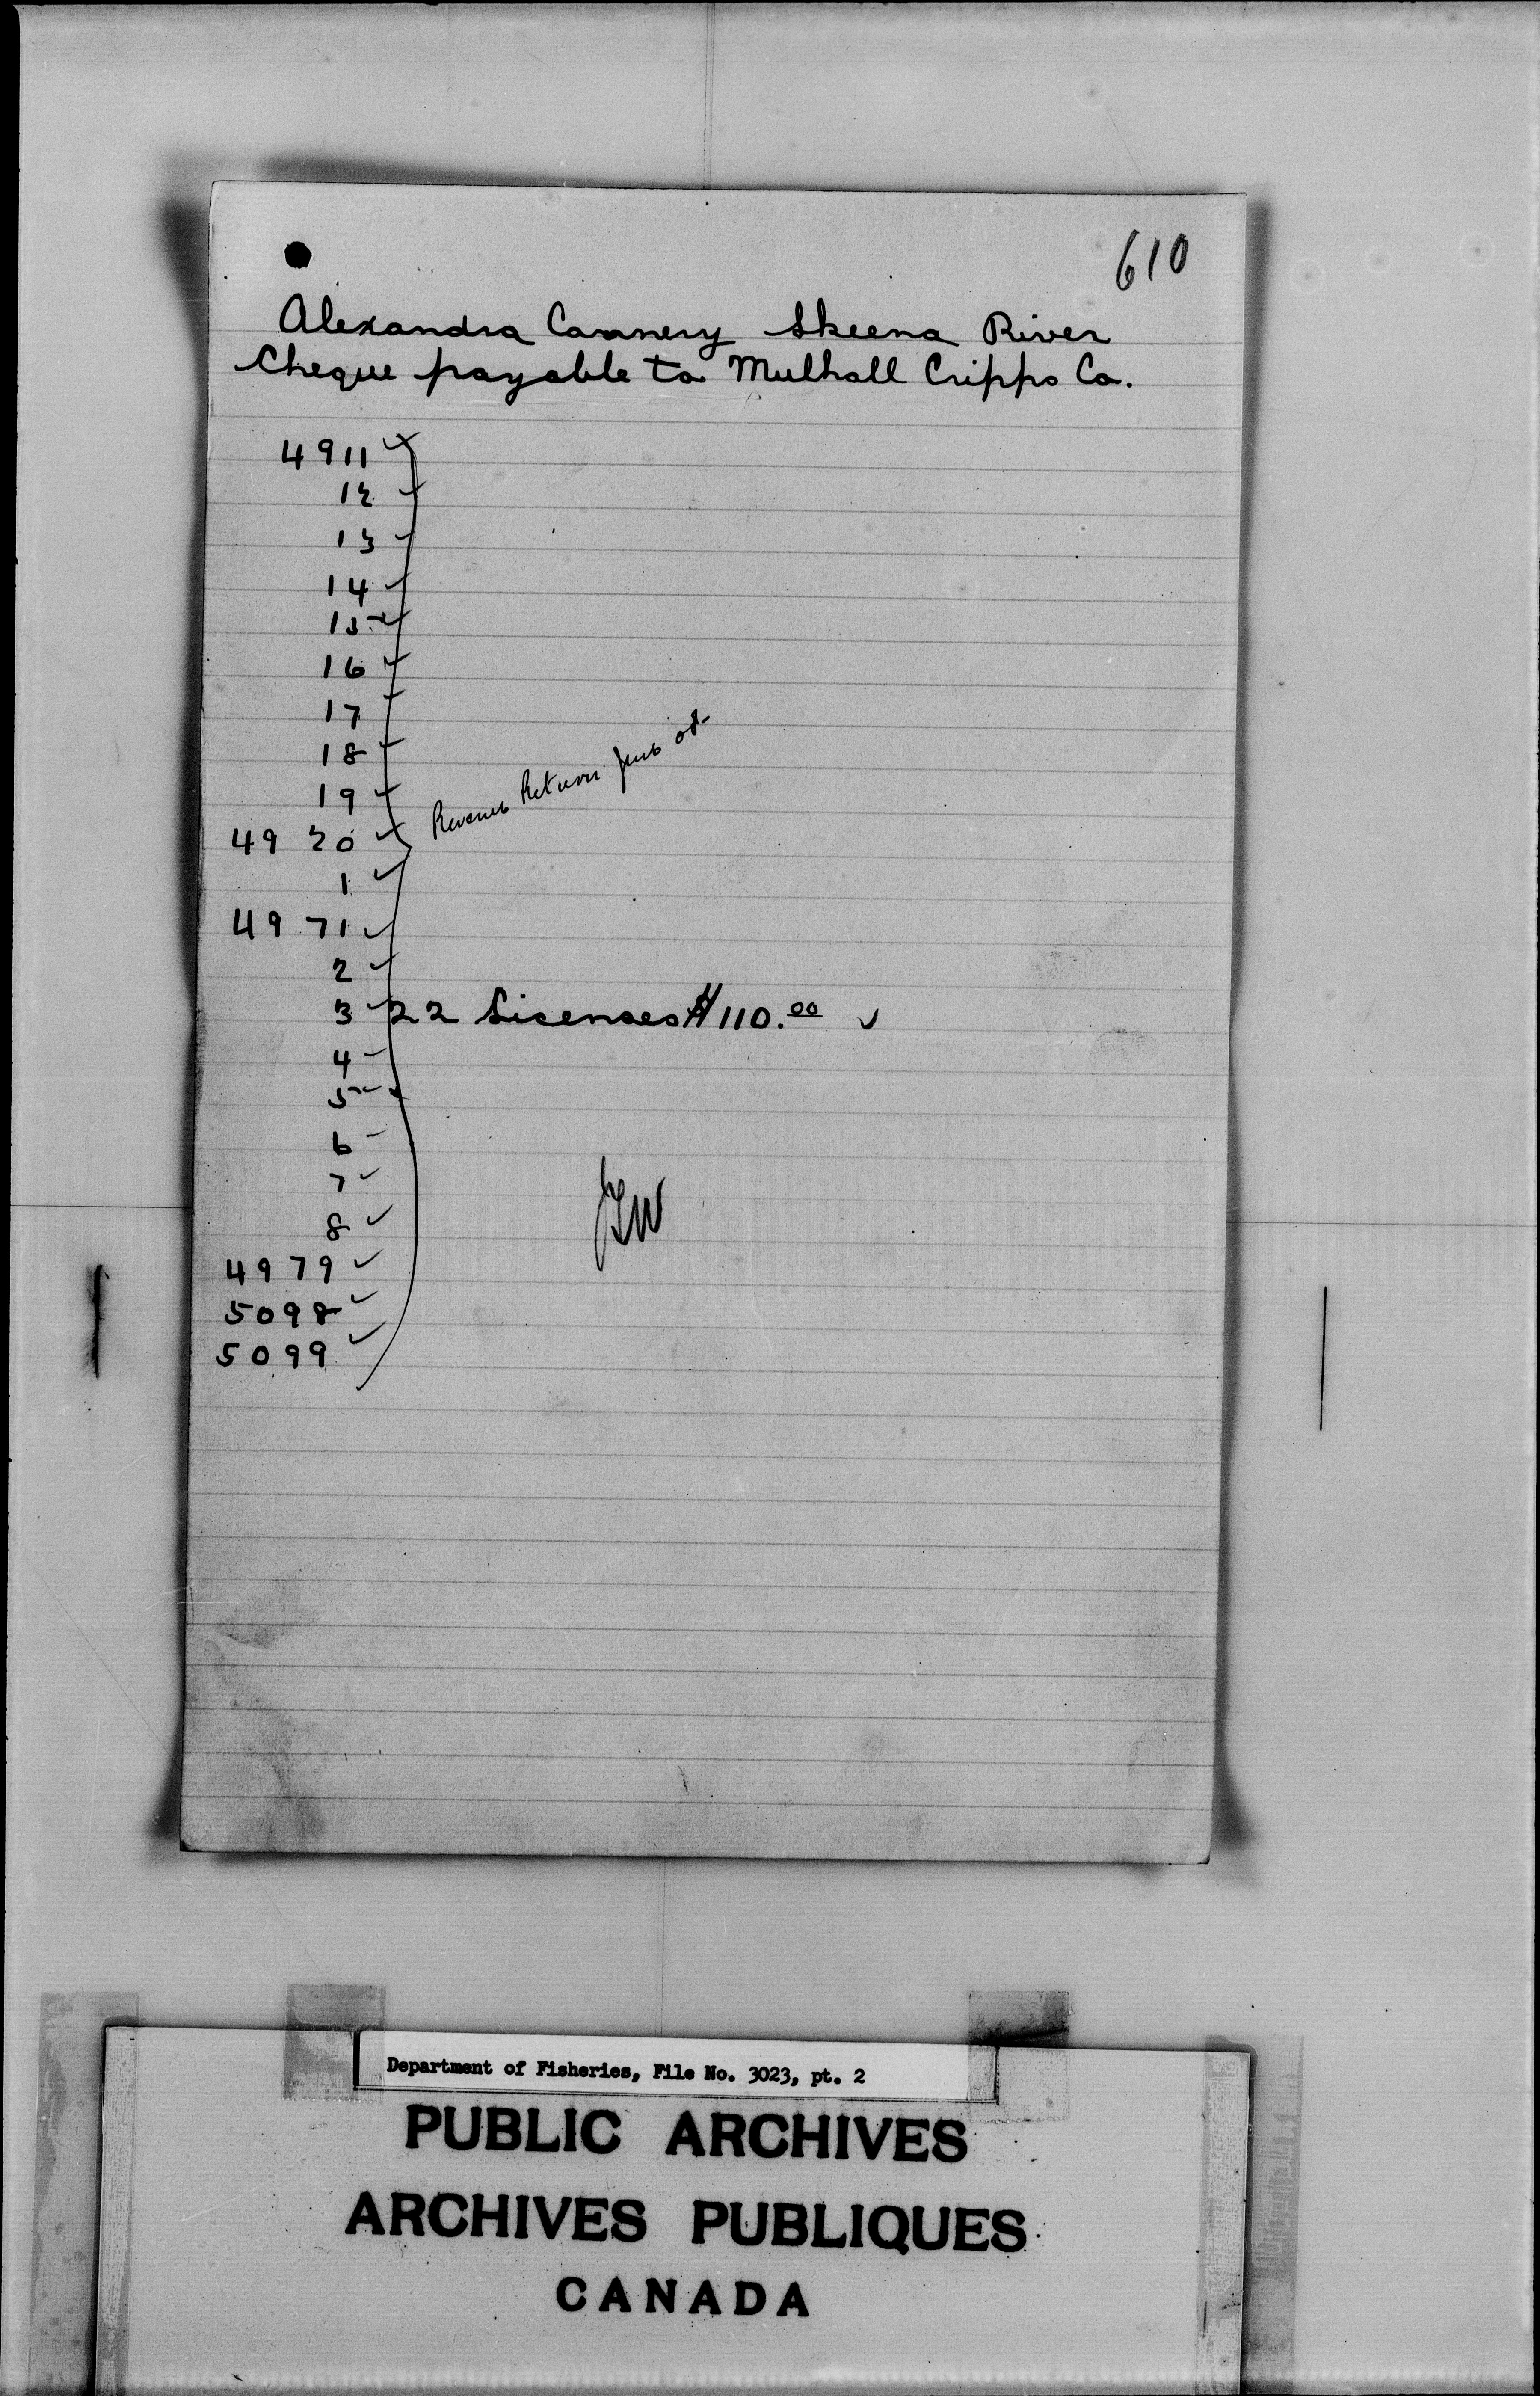 610
Alexandra Cannery Skeena River
Cheque payable to Mulhall Cripps Co.
4911 ✓
12 ✓
13 ✓
14 ✓
15 ✓
16 ✓
17 ✓
18 ✓
19 ✓
Return
4920 ✓
1 ✓
4971 ✓
2 ✓
3 ✓ 22 Licenses $110.00 ✓
4 ✓
5 ✓
6 ✓
7 ✓
8 ✓
4979 ✓
5098 ✓
5099 ✓
Department of Fisheries, File No. 3023, pt. 2
PUBLIC ARCHIVES
ARCHIVES PUBLIQUES
CANADA